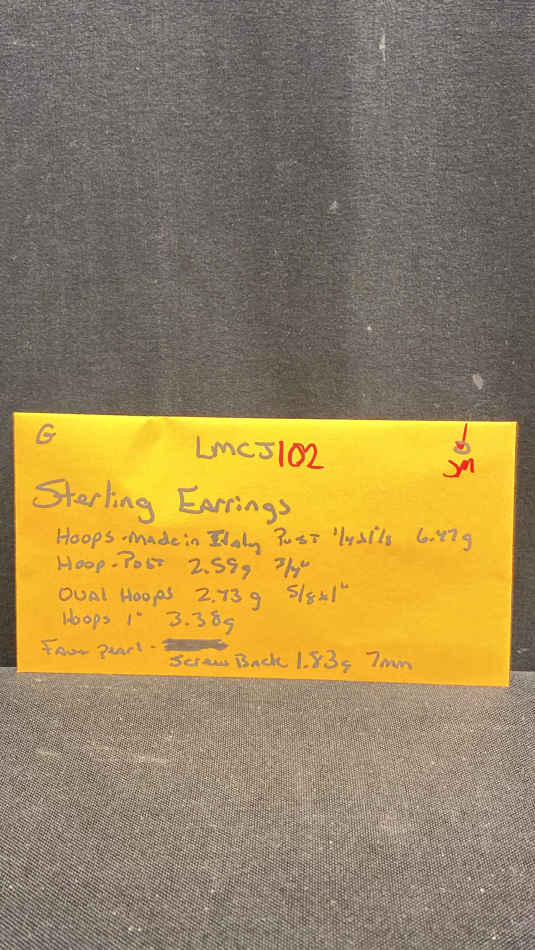 G
LMCJ102
JM
Sterling Earrings
Hoops - Made in Italy Post 1/4x1 1/8 6.47g
Hoop - Post 2.59g 3/4"
Oval Hoops 2.73g 5/8x1"
Hoops 1" 3.38g
Faux Pearl -
Screw Back 1.83g 7mm